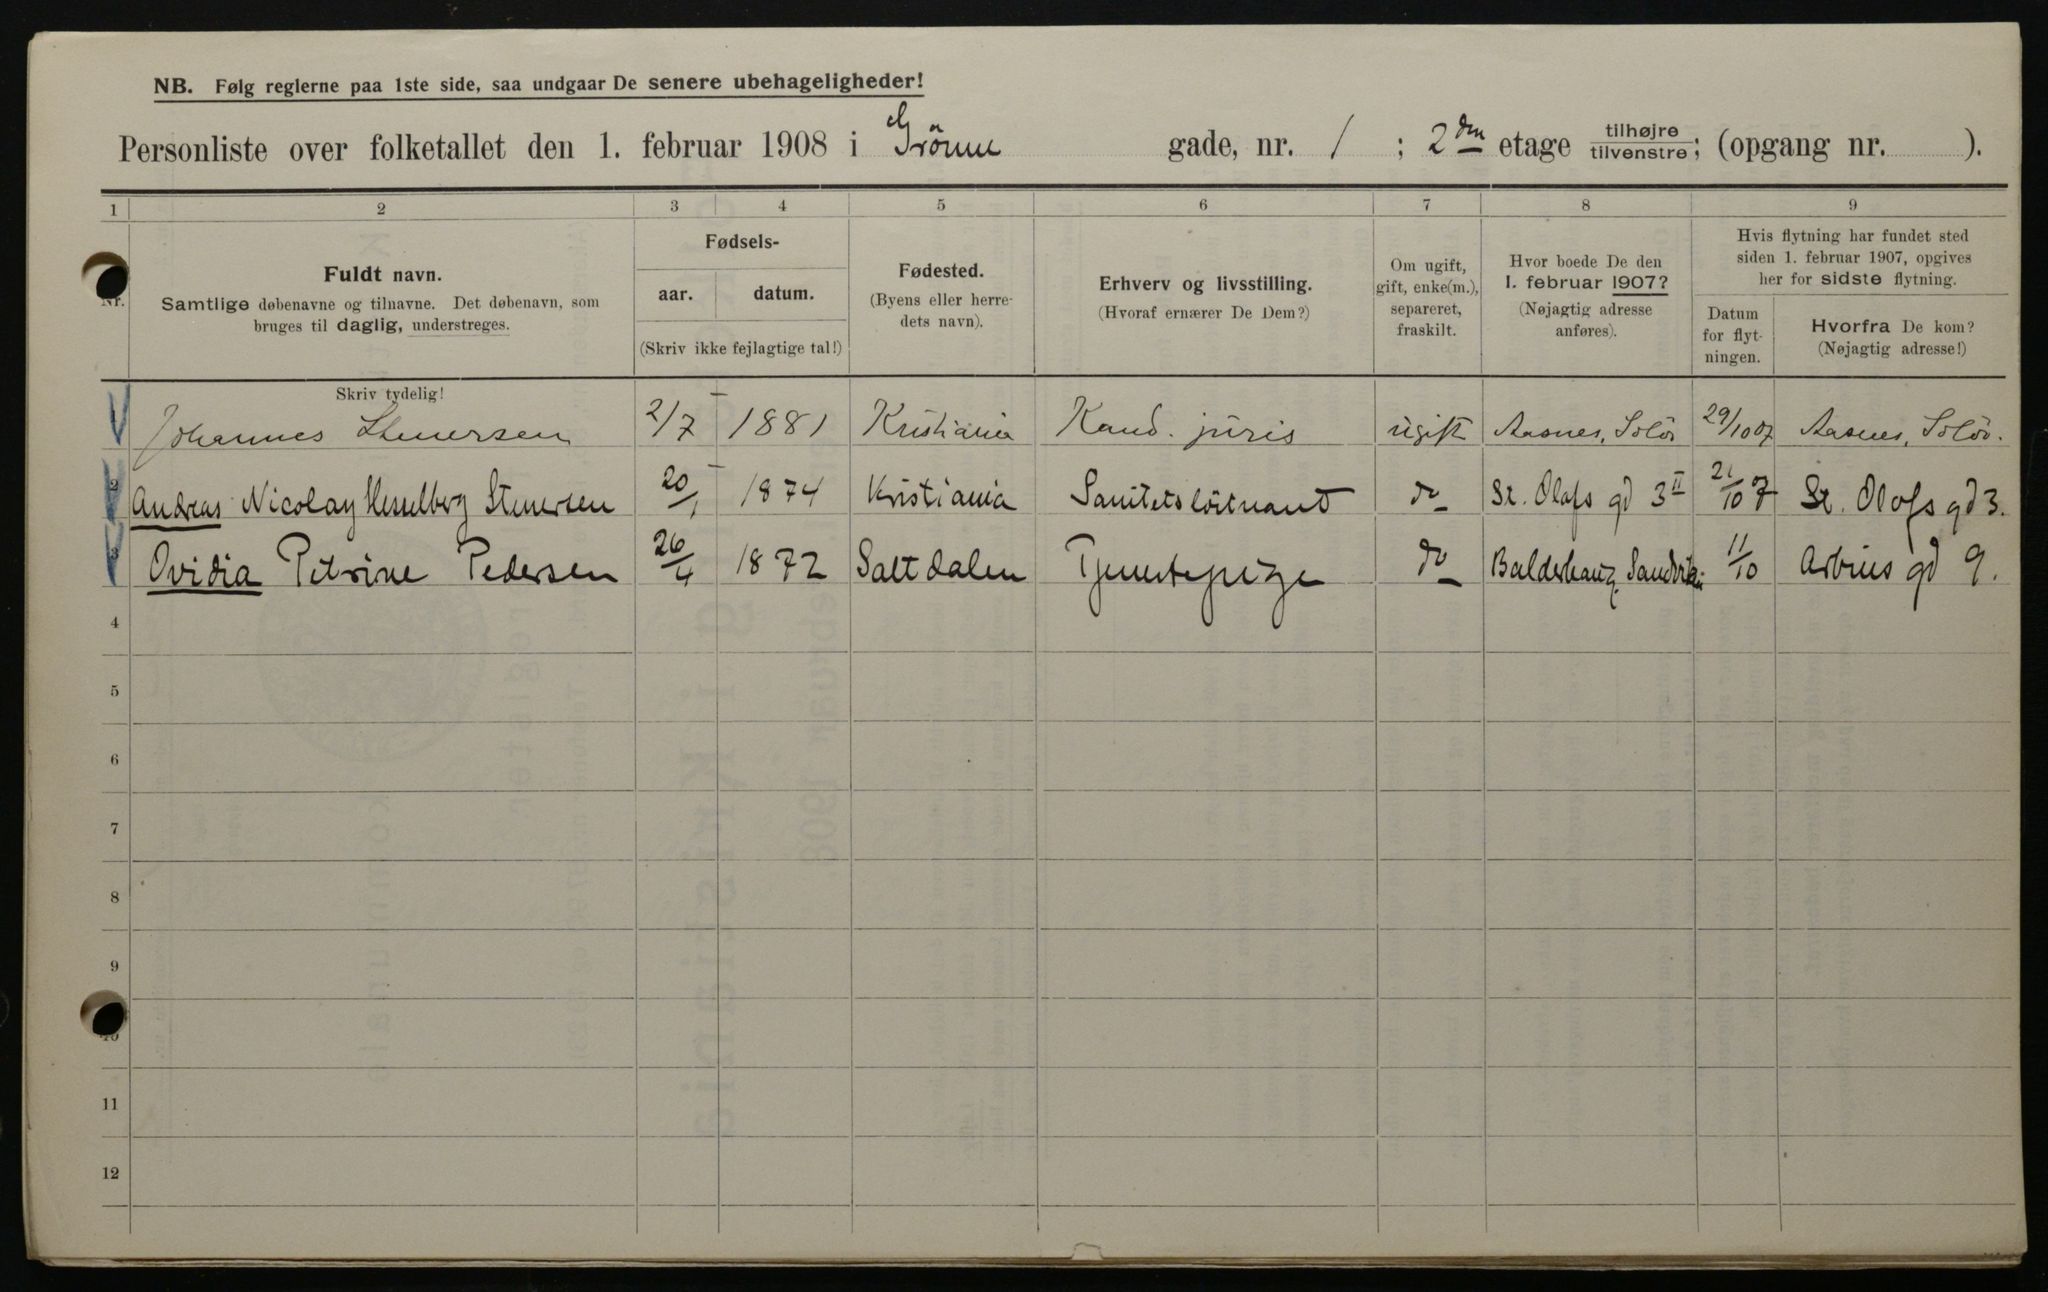 NB. Følg reglerne paa 1ste side, saa undgaar De senere ubehageligheder!
Personliste over folketallet den 1. februar 1908 i Grönne gade, nr. 1 ; 2den etage tilhøjre/tilvenstre; (opgang nr. ).
1 2 3 4 5 6 7 8 9
Nr.
Fuldt navn.
Samtlige døbenavne og tilnavne. Det døbenavn, som
bruges til daglig, understreges.
Fødsels-
aar. datum.
(Skriv ikke fejlagtige tal!)
Fødested.
(Byens eller herre-
dets navn).
Erhverv og livsstilling.
(Hvoraf ernærer De Dem?)
Om ugift,
gift, enke(m.),
separeret,
fraskilt.
Hvor boede De den
1. februar 1907?
(Nøjagtig adresse
anføres).
Hvis flytning har fundet sted
siden 1. februar 1907, opgives
her for sidste flytning.
Datum
for flyt-
ningen.
Hvorfra De kom?
(Nøjagtig adresse!)
Skriv tydelig!
1 Johannes Stenersen 2/7 1881 Kristiania Kand. juris ugift Aasnes, Solör 29/10 07 Aasnes, Solör.
2 Andreas Nicolay Hesselberg Stenersen 20/1 1874 Kristiania Sanitetslöitnant do St. Olafs gd 3 II 21/10 7 St. Olafs gd 3.
3 Ovidia Petrine Pedersen 26/4 1872 Saltdalen Tjenestepige do Balderhaug, Sandviken 11/10 Arbins gd 9.
4
5
6
7
8
9
10
11
12